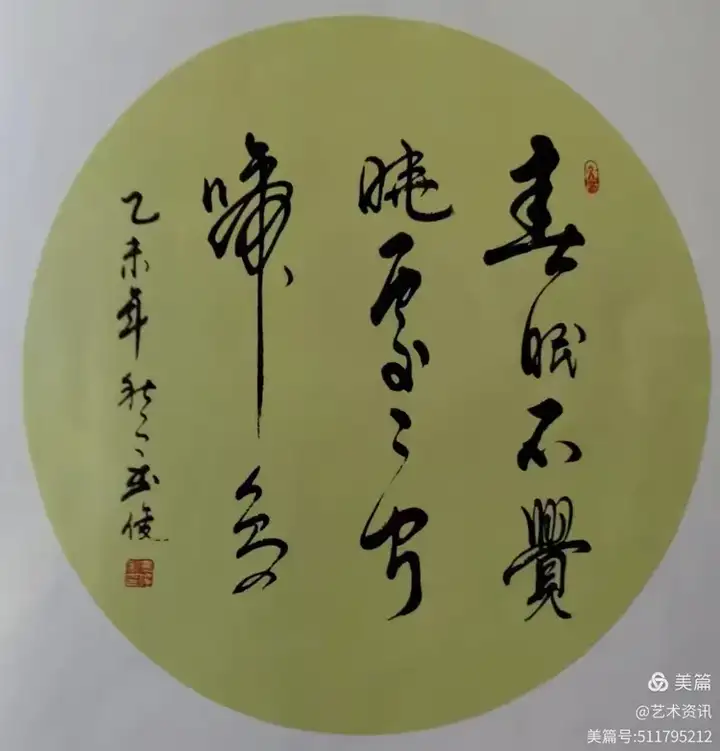 春眠不覺
曉處〻聞
啼鳥
乙未年秋
俊
美篇
@艺术资讯
美篇号:511795212